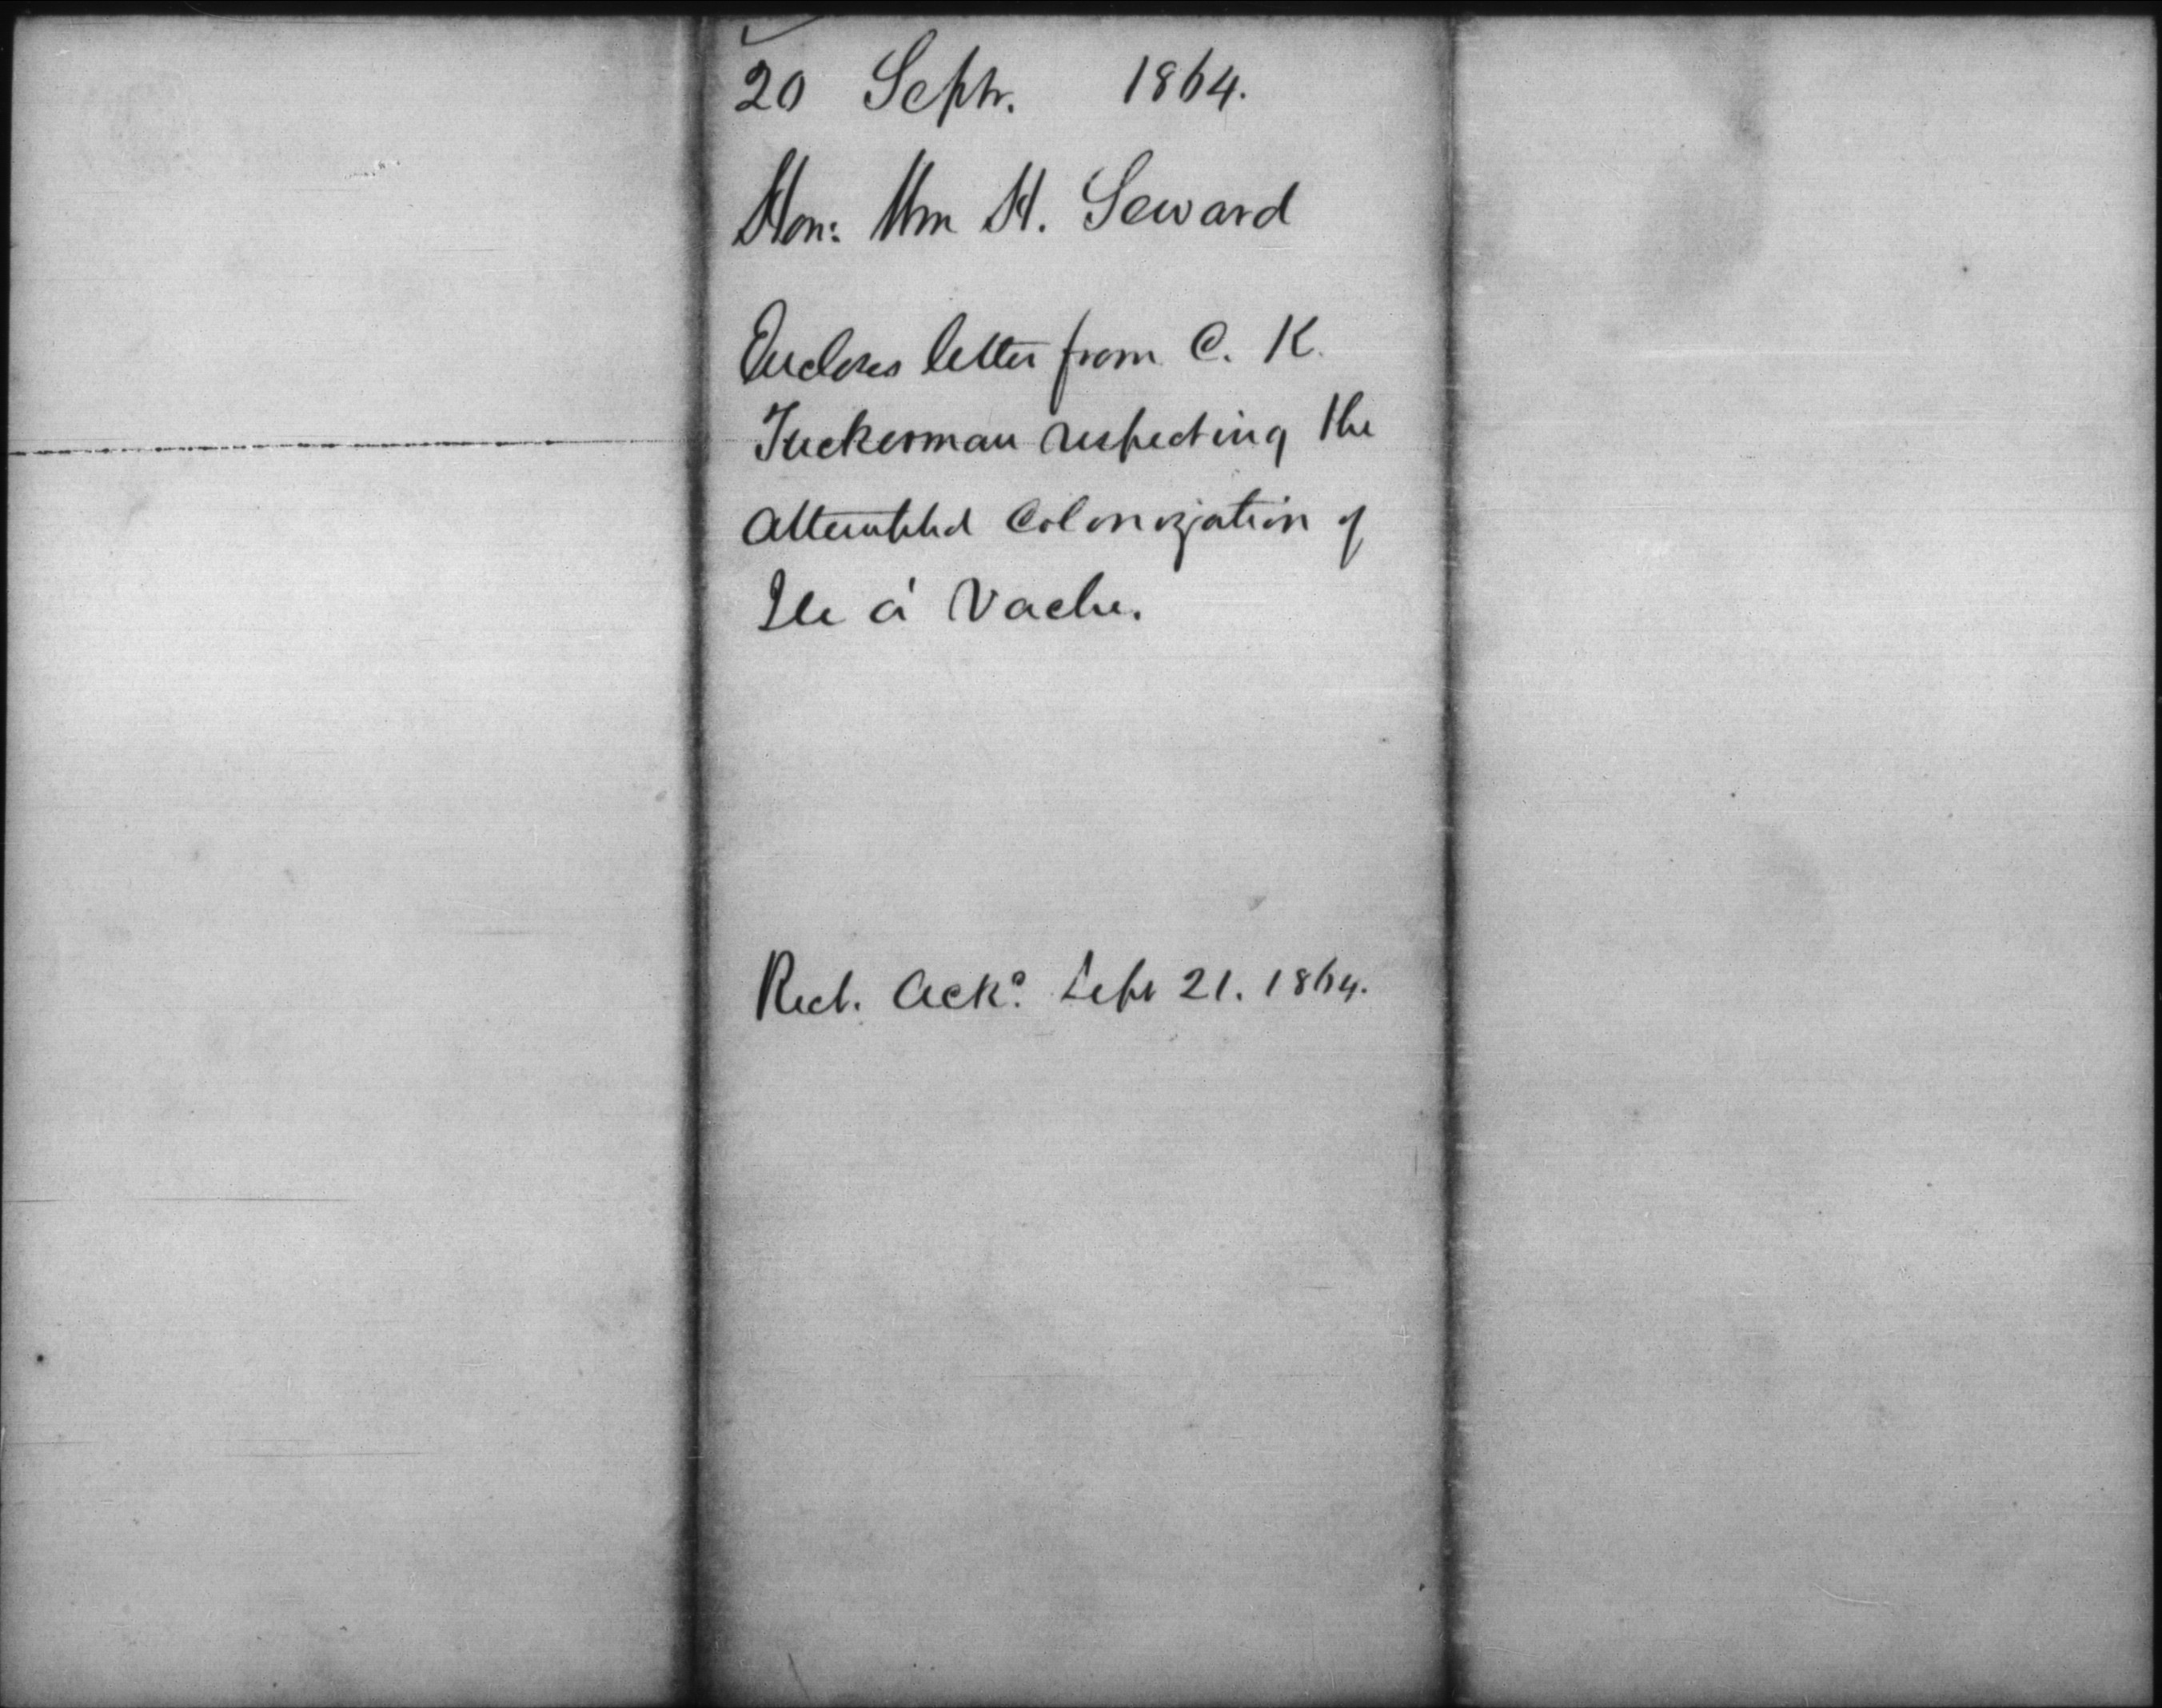 20 Septr. 1864.
Hon: Wm H. Seward
Encloses letter from C. K.
Tuckerman respecting the
attempted Colonization of
Ile à Vache.
Recd. Ackd. Sept 21. 1864.